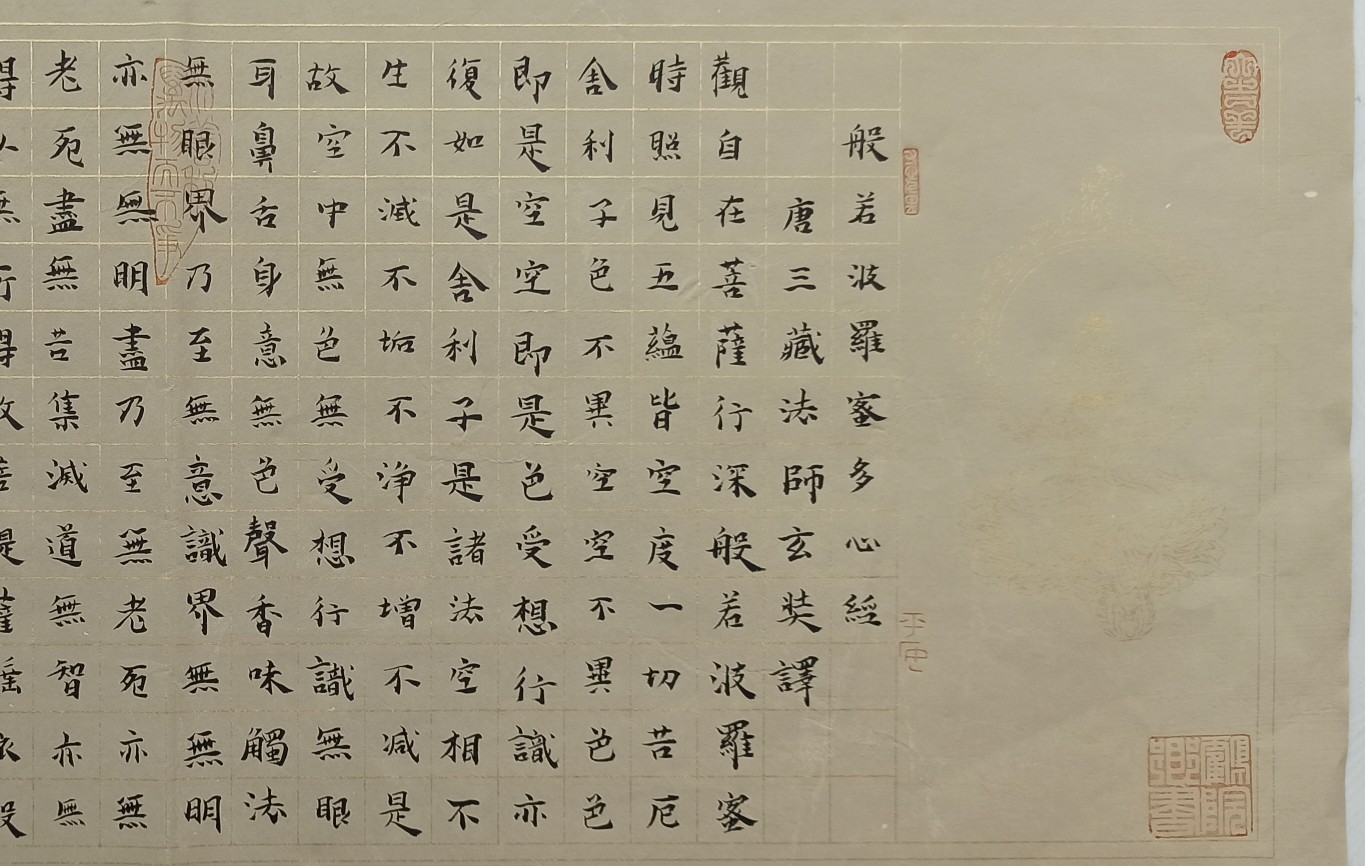 般若波羅蜜多心經
唐三藏法師玄奘譯
觀自在菩薩行深般若波羅蜜
時照見五蘊皆空度一切苦厄
舍利子色不異空空不異色色
即是空空即是色受想行識亦
復如是舍利子是諸法空相不
生不滅不垢不淨不增不減是
故空中無色無受想行識無眼
耳鼻舌身意無色聲香味觸法
無眼界乃至無意識界無無明
亦無無明盡乃至無老死亦無
老死盡無苦集滅道無智亦無
得以無所得故菩提薩埵依般